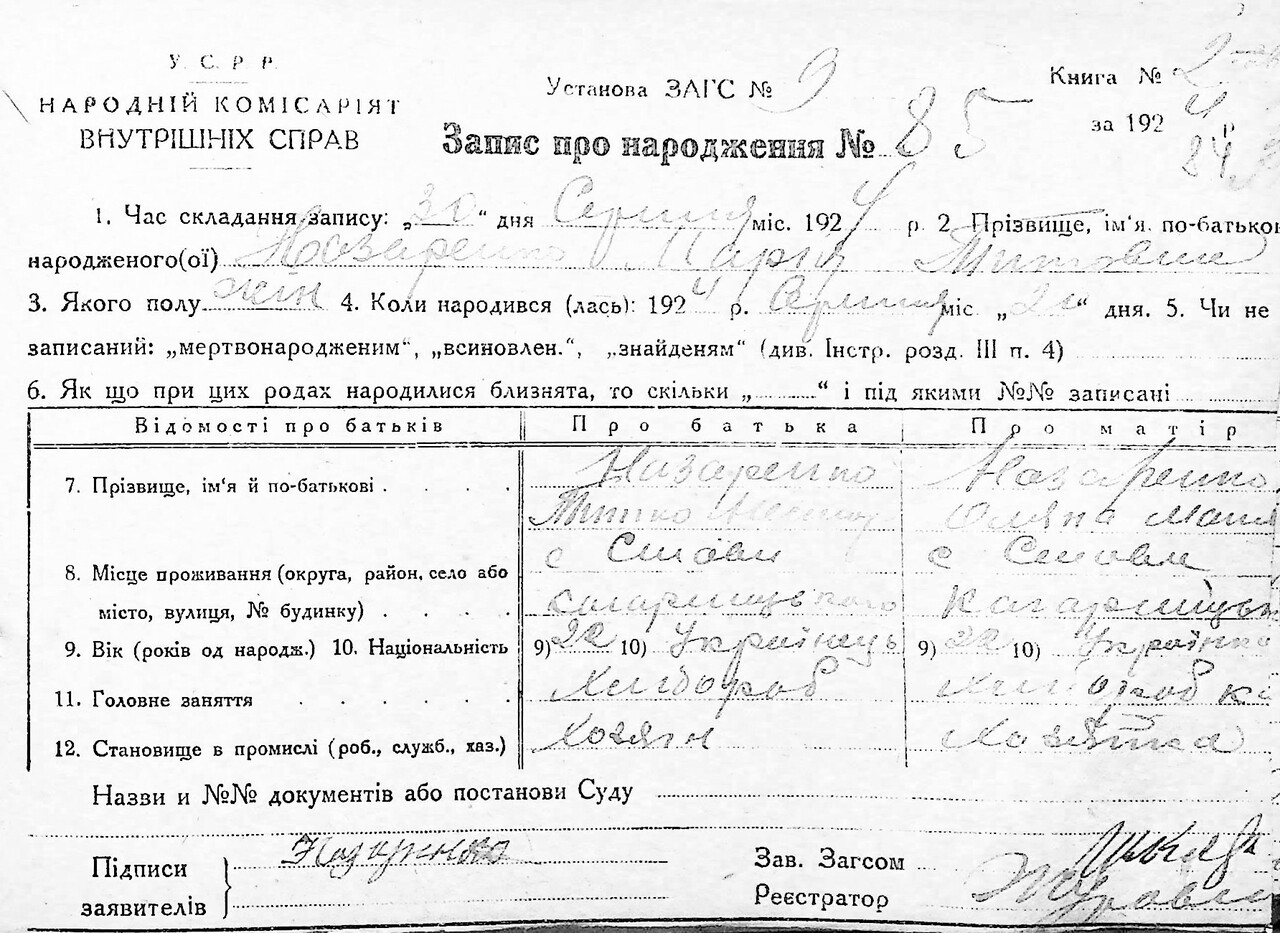 У. С. Р. Р.
НАРОДНІЙ КОМІСАРІЯТ
ВНУТРІШНІХ СПРАВ
Установа ЗАГС № 3
Книга № 2
за 1924 р
Запис про народження № 85
84
1. Час складання запису: „30“ дня Серпня міс. 1924 р. 2. Прізвище, ім‘я, по-батьков
народженого(ої) Назаренко Марія Титовна
3. Якого полу жін 4. Коли народився (лась): 1924 р. Серпня міс „ “ дня. 5. Чи не
записаний: „мертвонародженим“, „всиновлен.“, „знайденям“ (див. Інстр. розд. III п. 4)
6. Як що при цих родах народилися близнята, то скільки „ “ і під якими №№ записані
Відомості про батьків Про батька Про матір
7. Прізвище, ім‘я й по-батькові Назаренко Назаренко
Титко Оляна
8. Місце проживання (округа, район, село або с с
місто, вулиця, № будинку) Кагарлицького Кагарлицьк
9. Вік (років од народж.) 10. Національність 9) 22 10) Українець 9) 22 10) Українка
11. Головне заняття Хлібороб Хліборобка
12. Становище в промислі (роб., служб., хаз.) Хозяін Хазяйка
Назви и №№ документів або постанови Суду
Підписи Назаренко
заявителів
Зав. Загсом
Реєстратор